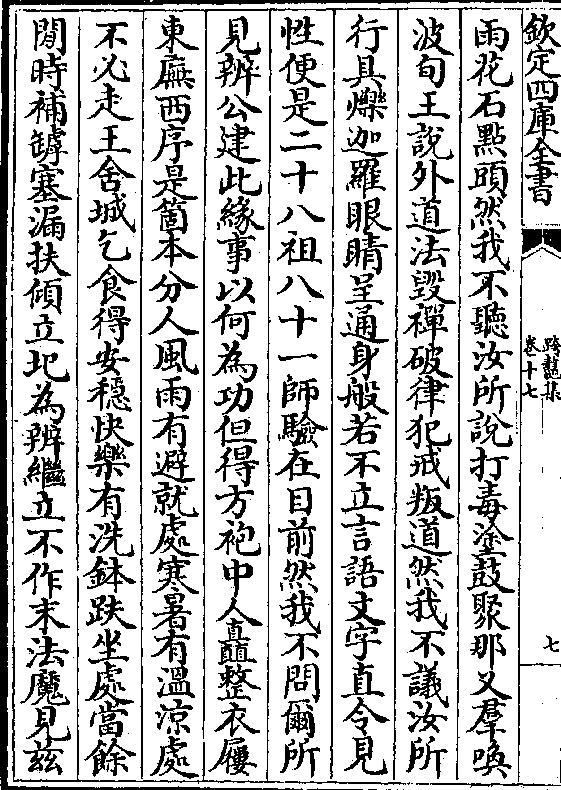 欽定四庫全書
跨鼇集
卷十七
七
雨花石點頭然我不聽汝所說打毒塗鼓聚那叉羣喚
波旬王說外道法毀禪破律犯戒叛道然我不議汝所
行具爍迦羅眼睛呈通身般若不立言語文字直令見
性便是二十八祖八十一師驗在目前然我不問爾所
見辨公建此緣事以何為功但得方袍中人矗矗整衣屨
東廡西序是箇本分人風雨有避就處寒暑有溫涼處
不必走王舍城乞食得安穩快樂有洗鉢趺坐處當餘
閒時補罅塞漏扶傾立圮為辨繼立不作末法魔見茲